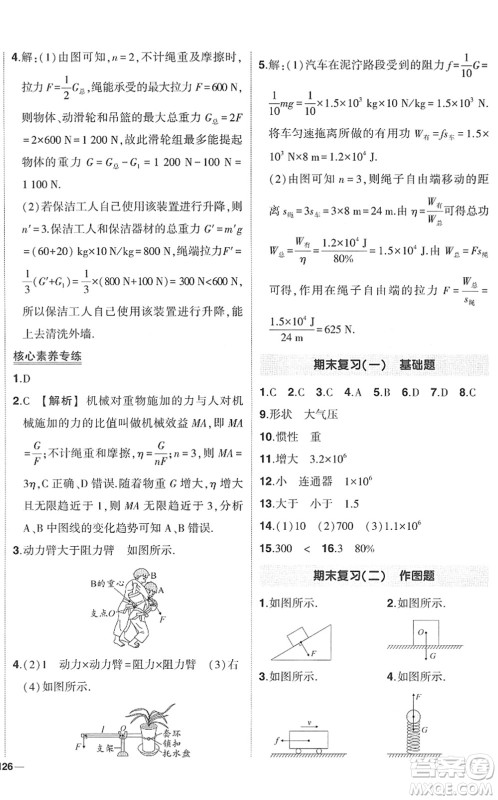 4.解：(1)由图可知，n＝2，不计绳重及摩擦时，
拉力F＝1/2 G总，绳能承受的最大拉力F＝600 N，
则物体、动滑轮和吊篮的最大总重力G总＝2F
＝2×600 N＝1 200 N，此时滑轮组最多能提起
物体的重力G＝G总－G1＝1 200 N－100 N＝
1 100 N.
(2)若保洁工人自己使用该装置进行升降，
n′＝3.保洁工人和保洁器材的总重力G′＝m′g
＝(60＋20) kg×10 N/kg＝800 N，绳端拉力F′＝
1/3(G′＋G1)＝1/3×(800 N＋100 N)＝300 N<600 N，
所以保洁工人自己使用该装置进行升降，能
上去清洗外墙.
核心素养专练
1.D
2.C 【解析】机械对重物施加的力与人对机
械施加的力的比值叫做机械效益MA，则MA
＝G/F；不计绳重和摩擦，η＝G/nF；n＝3，则MA＝
3η，C正确、D错误.随着物重的增加，η会越
来越趋近于1，MA会越来越趋近于3，分析
A、B中图线的变化趋势可知A、B错误.
3.动力臂大于阻力臂 如图所示.
B的重心
B
A
支点O
F
4.(2)1 动力×动力臂＝阻力×阻力臂 (3)右
(4)如图所示.
l
O
F
支架
套环
锁扣
托水盘
126
5.解：(1)汽车在泥泞路段受到的阻力f＝1/10 G＝
1/10 mg＝1/10×1.5×10³ kg×10 N/kg＝1.5×10³ N，
将车匀速拖离所做的有用功W有＝fs车＝1.5×
10³ N×8 m＝1.2×10⁴ J.
(2)由图可知n＝3，则绳子自由端移动的距
离s绳＝3s车＝3×8 m＝24 m，由η＝W有/W总可得总功
W总＝W有/η＝1.2×10⁴ J/80%＝1.5×10⁴ J.由W总＝Fs绳
可得，作用在绳子自由端的拉力F＝W总/s绳＝
1.5×10⁴ J/24 m＝625 N.
期末复习(一) 基础题
1.C 2.C 3.C 4.B 5.D 6.D 7.D 8.C
9.形状 大气压
10.惯性 重
11.增大 3.2×10⁶
12.小 连通器 1.5×10⁴
13.大于 小于 1.5
14.(1)10 (2)700 (3)1.3×10⁶
15.300 < 16.3 80%
期末复习(二) 作图题
1.如图所示.
F
2.如图所示.
O
G
3.如图所示.
v
f
4.如图所示.
F